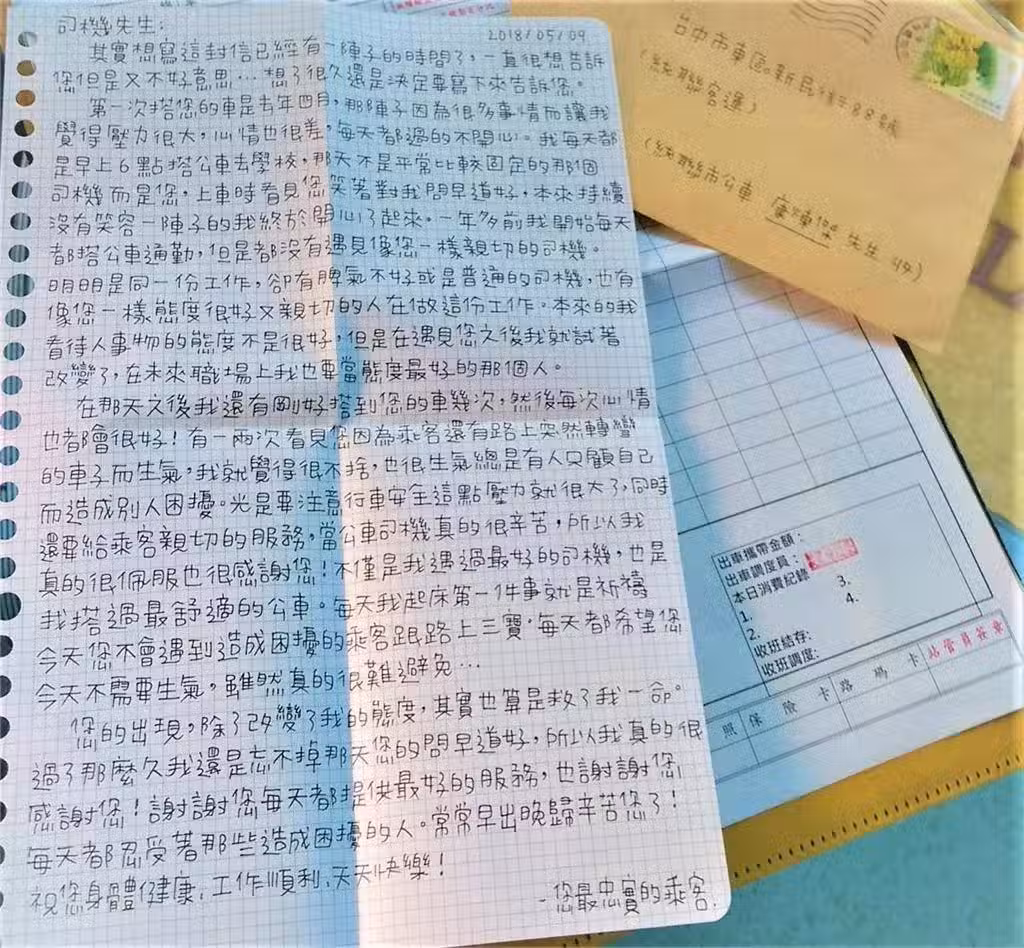 司機先生:
2018/05/09
其實想寫這封信已經有一陣子的時間了,一直很想告訴
您但是又不好意思…想了很久還是決定要寫下來告訴您。
第一次搭您的車是去年四月,那陣子因為很多事情而讓我
覺得壓力很大,心情也很差,每天都過的不開心。我每天都
是早上6點搭公車去學校,那天不是平常比較固定的那個
司機而是您,上車時看見您笑著對我問早道好,本來持續
沒有笑容一陣子的我終於開心了起來。一年多前我開始每天
都搭公車通勤,但是都沒有遇見像您一樣親切的司機。
明明是同一份工作,卻有脾氣不好或是普通的司機,也有
像您一樣態度很好又親切的人在做這份工作。本來的我
看待人事物的態度不是很好,但是在遇見您之後我就試著
改變了,在未來職場上我也要當態度最好的那個人。
在那天之後我還有剛好搭到您的車幾次,然後每次心情
也都會很好!有一兩次看見您因為乘客還有路上突然轉彎
的車子而生氣,我就覺得很不捨,也很生氣總是有人只顧自己
而造成別人困擾。光是要注意行車安全這點壓力就很大了,同時
還要給乘客親切的服務,當公車司機真的很辛苦,所以我
真的很佩服也很感謝您!不僅是我遇過最好的司機,也是
我搭過最舒適的公車。每天我起床第一件事就是祈禱
今天您不會遇到造成困擾的乘客跟路上三寶,每天都希望您
今天不需要生氣,雖然真的很難避免…
您的出現,除了改變了我的態度,其實也算是救了我一命。
過了那麼久我還是忘不掉那天您的問早道好,所以我真的很
感謝您!謝謝您每天都提供最好的服務,也謝謝您
每天都忍受著那些造成困擾的人。常常早出晚歸辛苦您了!
祝您身體健康,工作順利,天天快樂!
-您最忠實的乘客.
台中市東區新民街88號
(統聯客運)
(統聯市公車 先生 收)
出車攜帶金額:
出車調度員:
本日消費紀錄
1. 3.
2. 4.
收班結存:
收班調度:
照 保 險 卡 路 碼 卡 站管員簽章